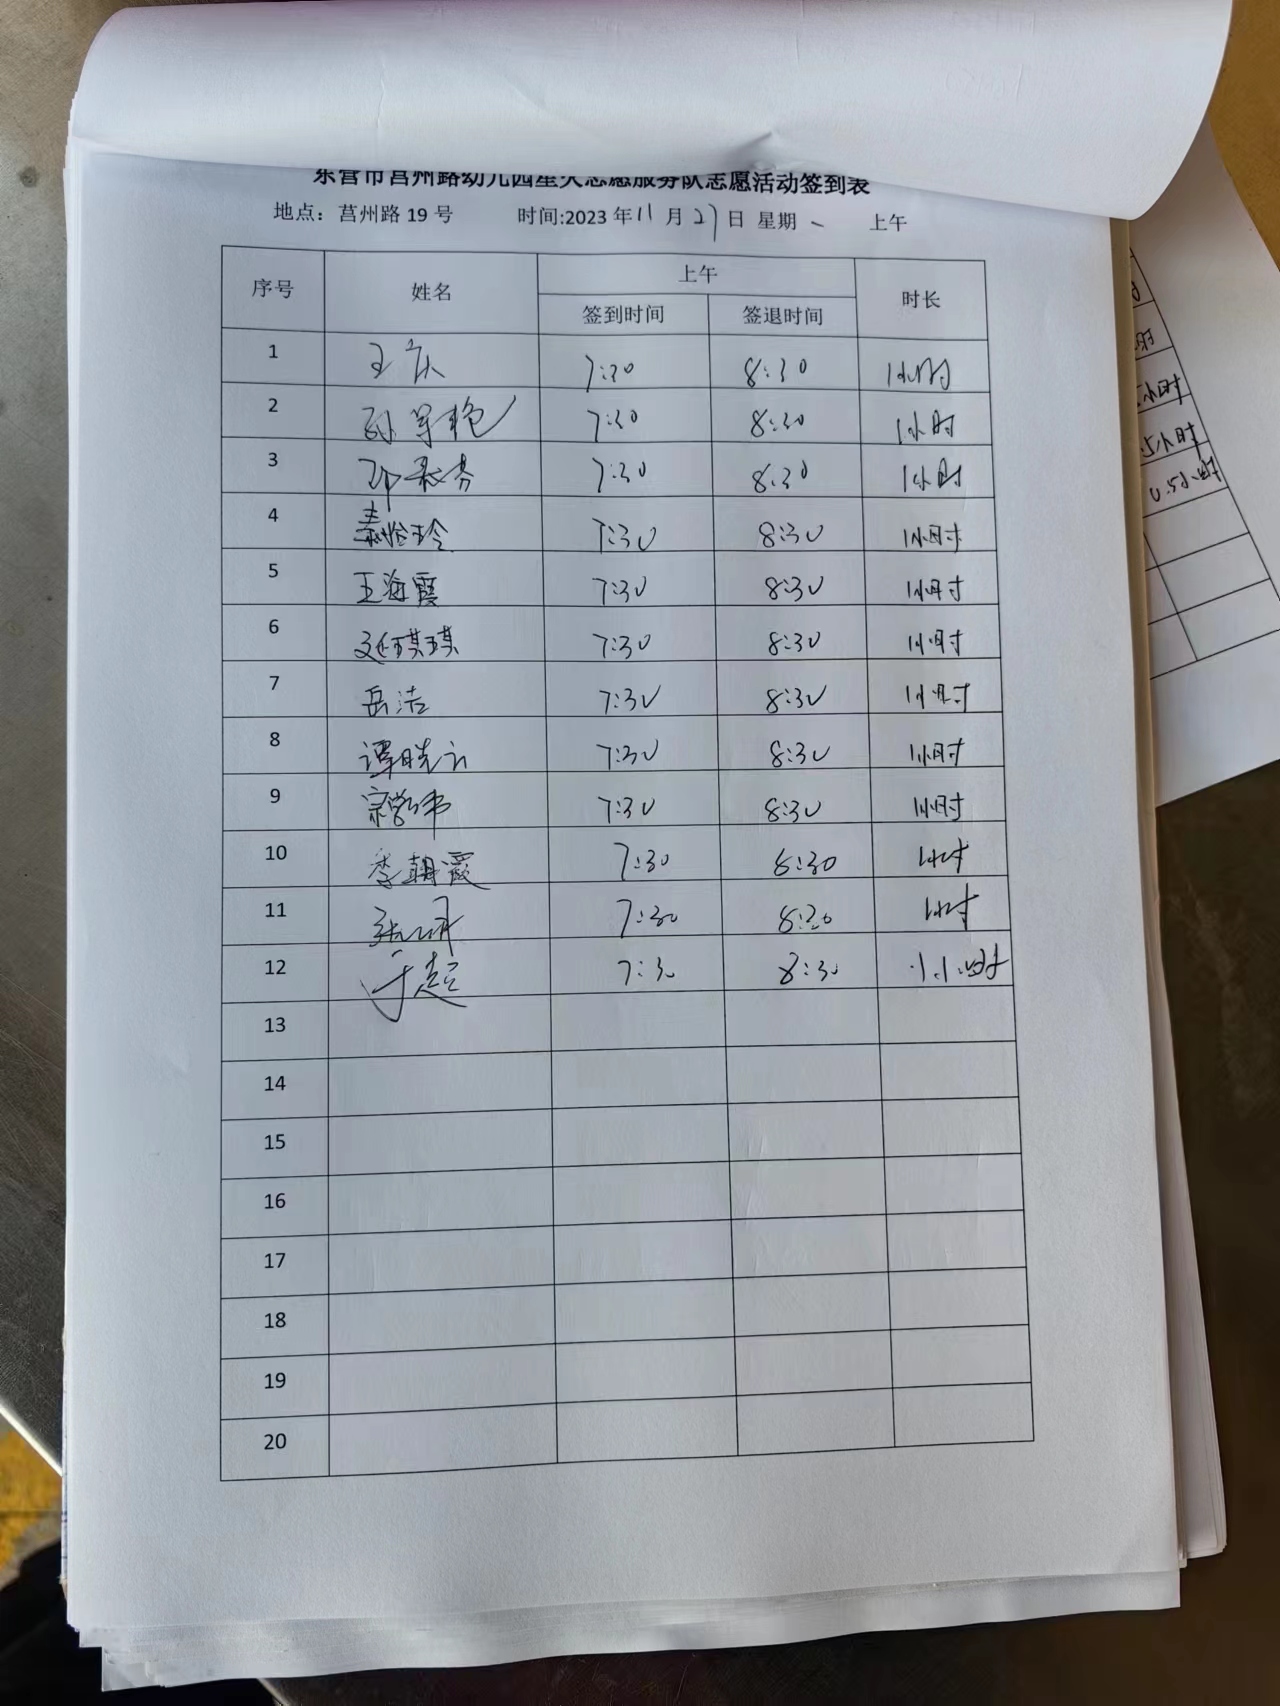 东营市莒州路幼儿园星火志愿服务队志愿活动签到表
地点：莒州路 19 号 时间:2023 年 11 月 27 日 星期 一 上午
序号 姓名 上午 时长
签到时间 签退时间
1 7:30 8:30 1小时
2 7:30 8:30 1小时
3 7:30 8:30 1小时
4 秦怡玲 7:30 8:30 1小时
5 王海霞 7:30 8:30 1小时
6 延琪琪 7:30 8:30 1小时
7 岳洁 7:30 8:30 1小时
8 谭晓 7:30 8:30 1小时
9 宗 7:30 8:30 1小时
10 季朝霞 7:30 8:30 1小时
11 7:30 8:30 1小时
12 于超 7:30 8:30 1小时
13
14
15
16
17
18
19
20
小时
5小时
0.5小时